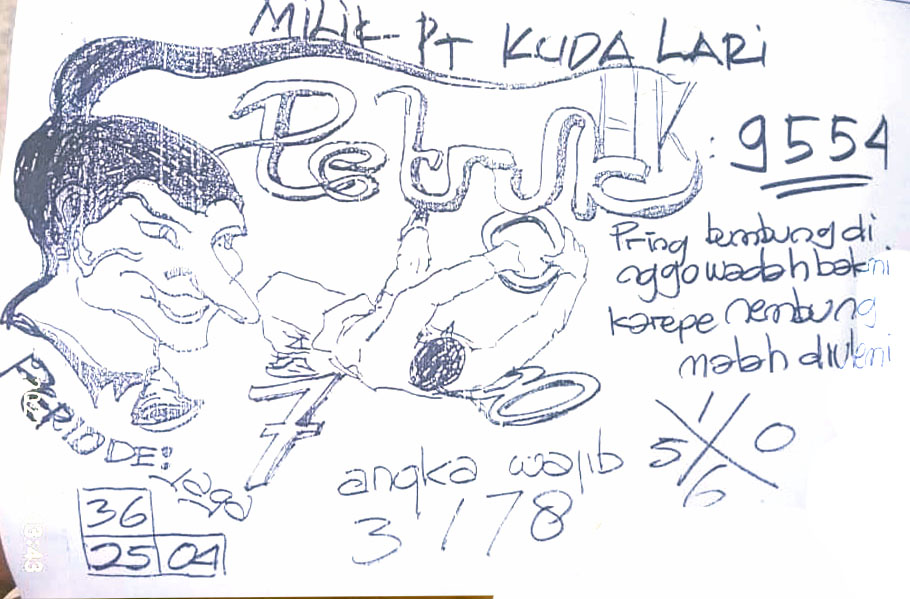 MILIK PT KUDA LARI
Petruk : 9554
Pring bumbung di
nggo wadah bakmi
karepe nembung
malah diuleni
70
PERIODE:
Jaga
36
25 04
angka wajib
3 1 7 8
1
5 X 0
6